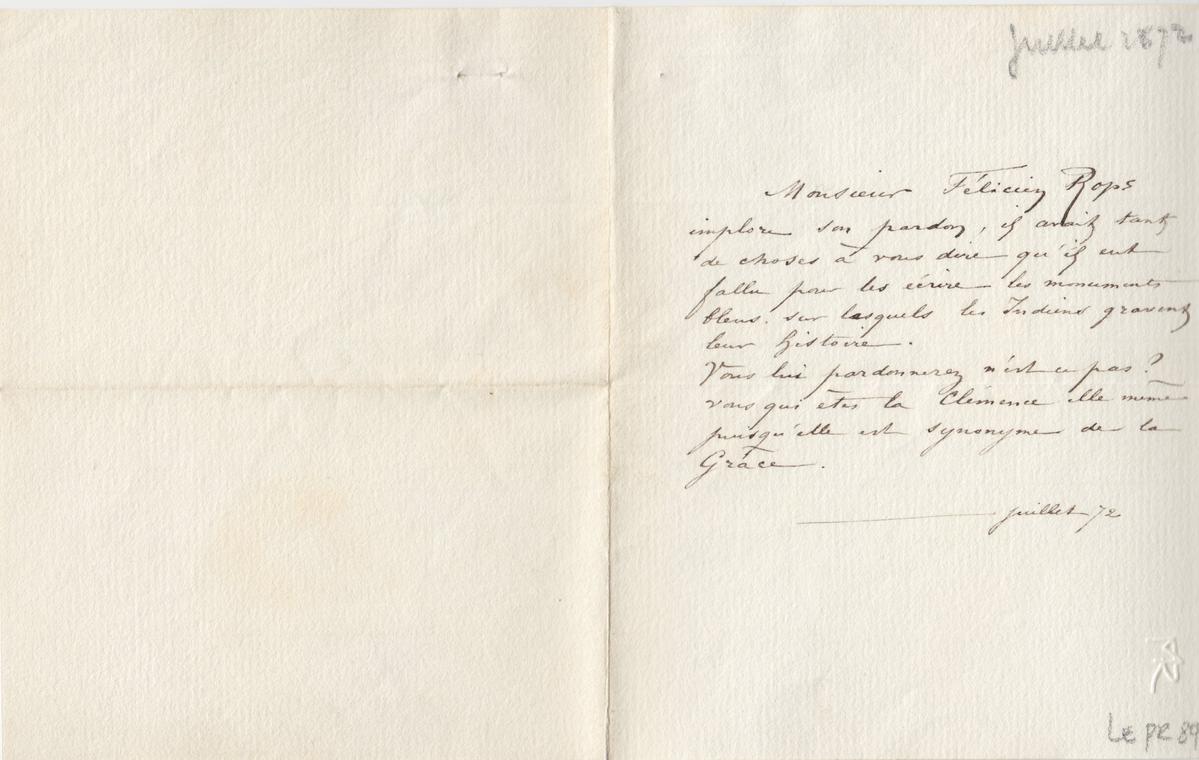 Juillet 1872
Monsieur Félicien Rops
implore son pardon, il avait tant
de choses à vous dire qu'il eut
fallu pour les écrire les monuments
bleus sur lesquels les Indiens gravent
leur histoire.
Vous lui pardonnerez n'est ce pas?
vous qui êtes la Clémence elle même
puisqu'elle est synonyme de la
Grâce.
juillet 72
LEPR 89